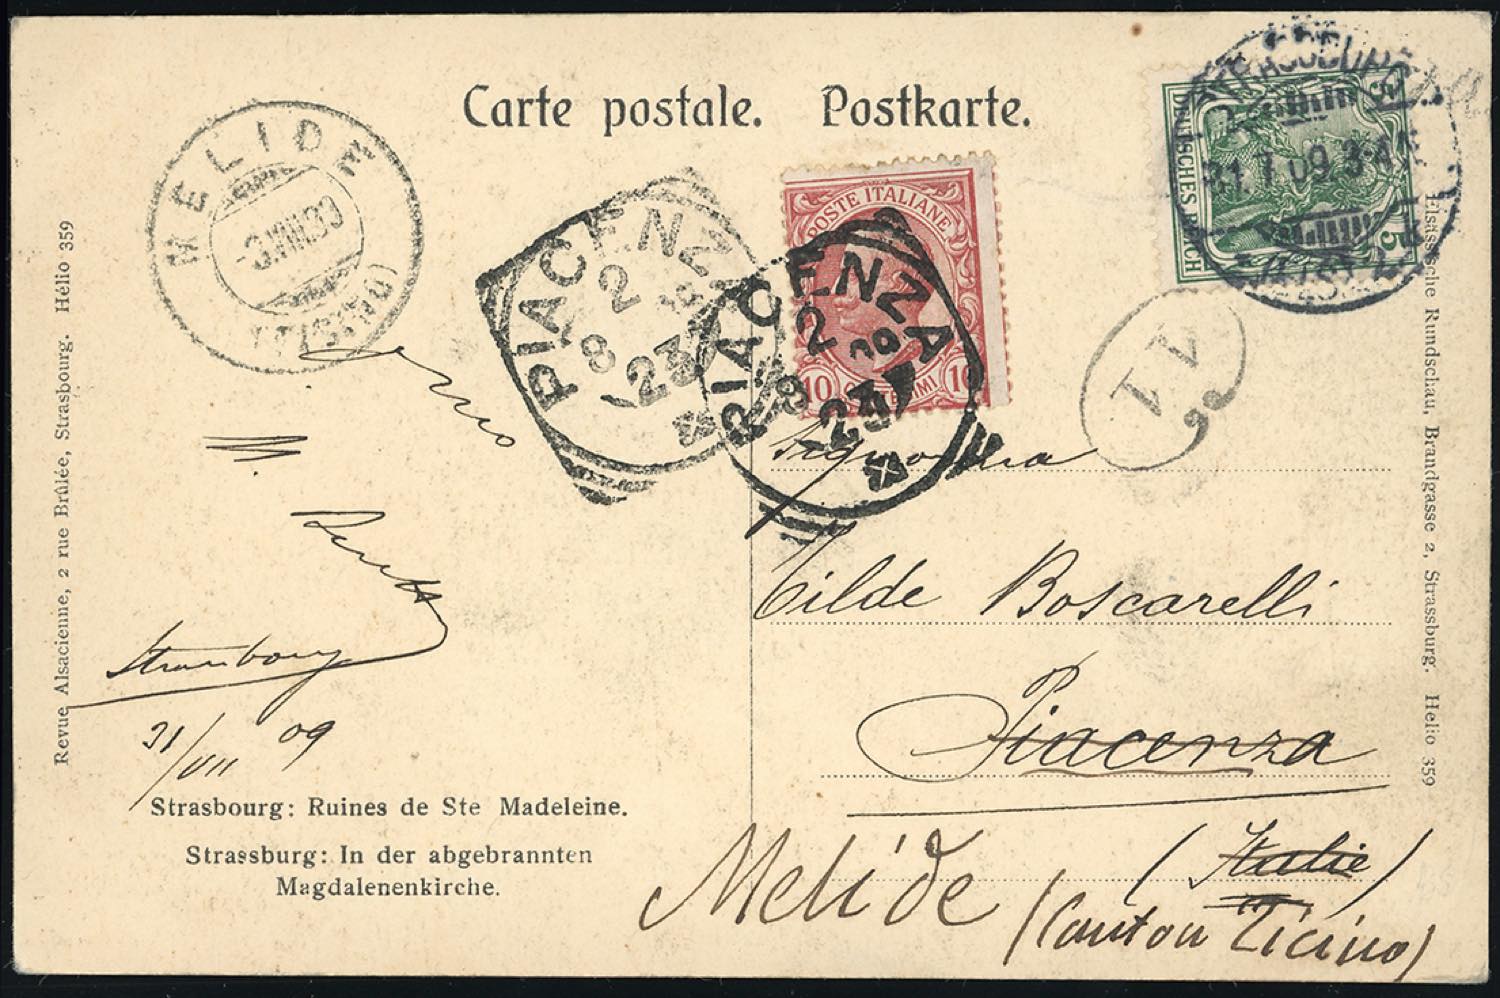 Carte postale. Postkarte.
MELIDE
(TICINO)
PIACENZA
2
8
23
PIACENZA
2
8
09
23
POSTE ITALIANE
10 CENTESIMI 10
DEUTSCHES REICH
5
5
31.7.09.3-4N
11
Signorina
Tilde Boscarelli
Piacenza
(Italie)
Melide
(Canton Ticino)
Strasbourg
31/VII 09
Strasbourg: Ruines de Ste Madeleine.
Strassburg: In der abgebrannten
Magdalenenkirche.
Revue Alsacienne, 2 rue Brûlée, Strasbourg. Hélio 359
Elsässische Rundschau, Brandgasse 2, Strassburg. Helio 359